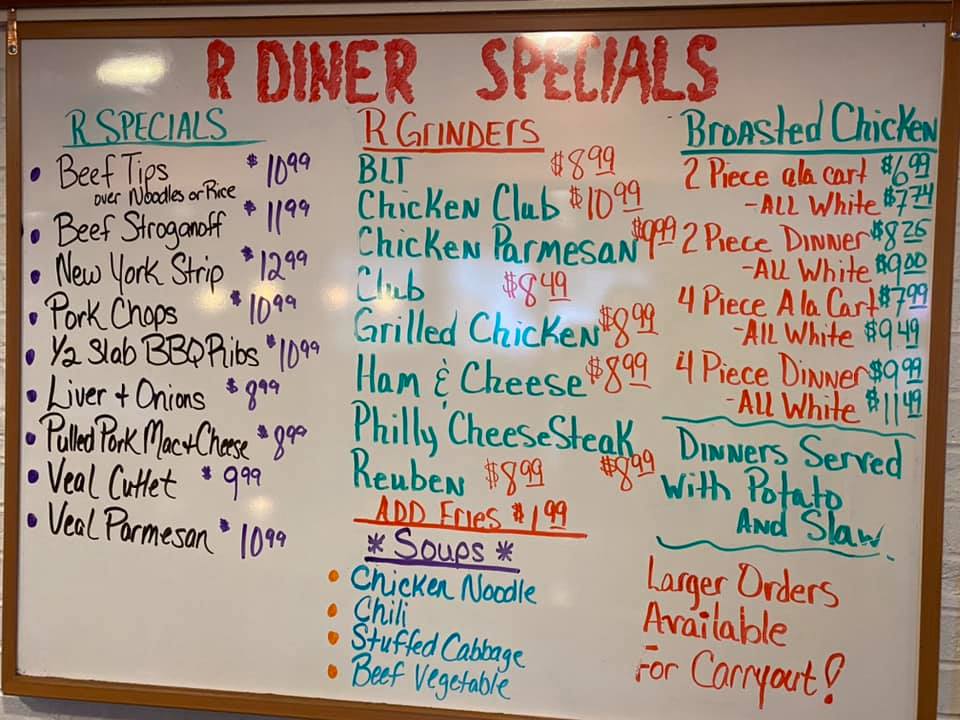 R DINER SPECIALS
R SPECIALS
• Beef Tips $10.99
over Noodles or Rice
• Beef Stroganoff $11.99
• New York Strip $12.99
• Pork Chops $10.99
• 1/2 Slab BBQ Ribs $10.99
• Liver + Onions $8.99
• Pulled Pork Mac + Cheese $8.99
• Veal Cutlet $9.99
• Veal Parmesan $10.99
R GRINDERS
BLT $8.99
Chicken Club $10.99
Chicken Parmesan $9.99
Club $8.49
Grilled Chicken $8.99
Ham & Cheese $8.99
Philly CheeseSteak $8.99
Reuben $8.99
ADD Fries $1.99
* Soups *
• Chicken Noodle
• Chili
• Stuffed Cabbage
• Beef Vegetable
BROASTED CHICKEN
2 Piece ala cart $6.99
- ALL White $7.74
2 Piece Dinner $8.25
- ALL White $9.00
4 Piece A la Cart $7.99
- ALL White $9.49
4 Piece Dinner $9.99
- ALL White $11.49
DINNERS SERVED
With Potato
AND Slaw.
Larger Orders
Available
For Carryout!